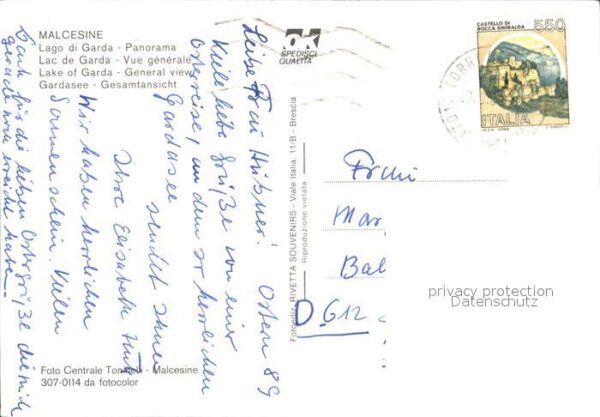 MALCESINE
Lago di Garda - Panorama
Lac de Garda - Vue générale
Lake of Garda - General view
Gardasee - Gesamtansicht
OK
SPEDISCI
QUALITÀ
CASTELLO DI
ROCCA SINIBALDA
550
ITALIA
TORR
Ostern 89
Liebe Frau Hübner!
Viele liebe Grüße von einer
Osterreise, an dem so herrlichen
Gardasee sendet Ihnen
Ihre Elisabeth
Wir haben herrlichen
Sonnenschein. Vielen
Dank für die lieben Ostergrüße die mich
gerade noch erreicht haben.
Fotocentro RIVETTA SOUVENIRS - Viale Italia, 11/B - Brescia
Riproduzione vietata
Frau
Mar
Bal
D 612
privacy protection
Datenschutz
Foto Centrale Tonnelli - Malcesine
307-0114 da fotocolor